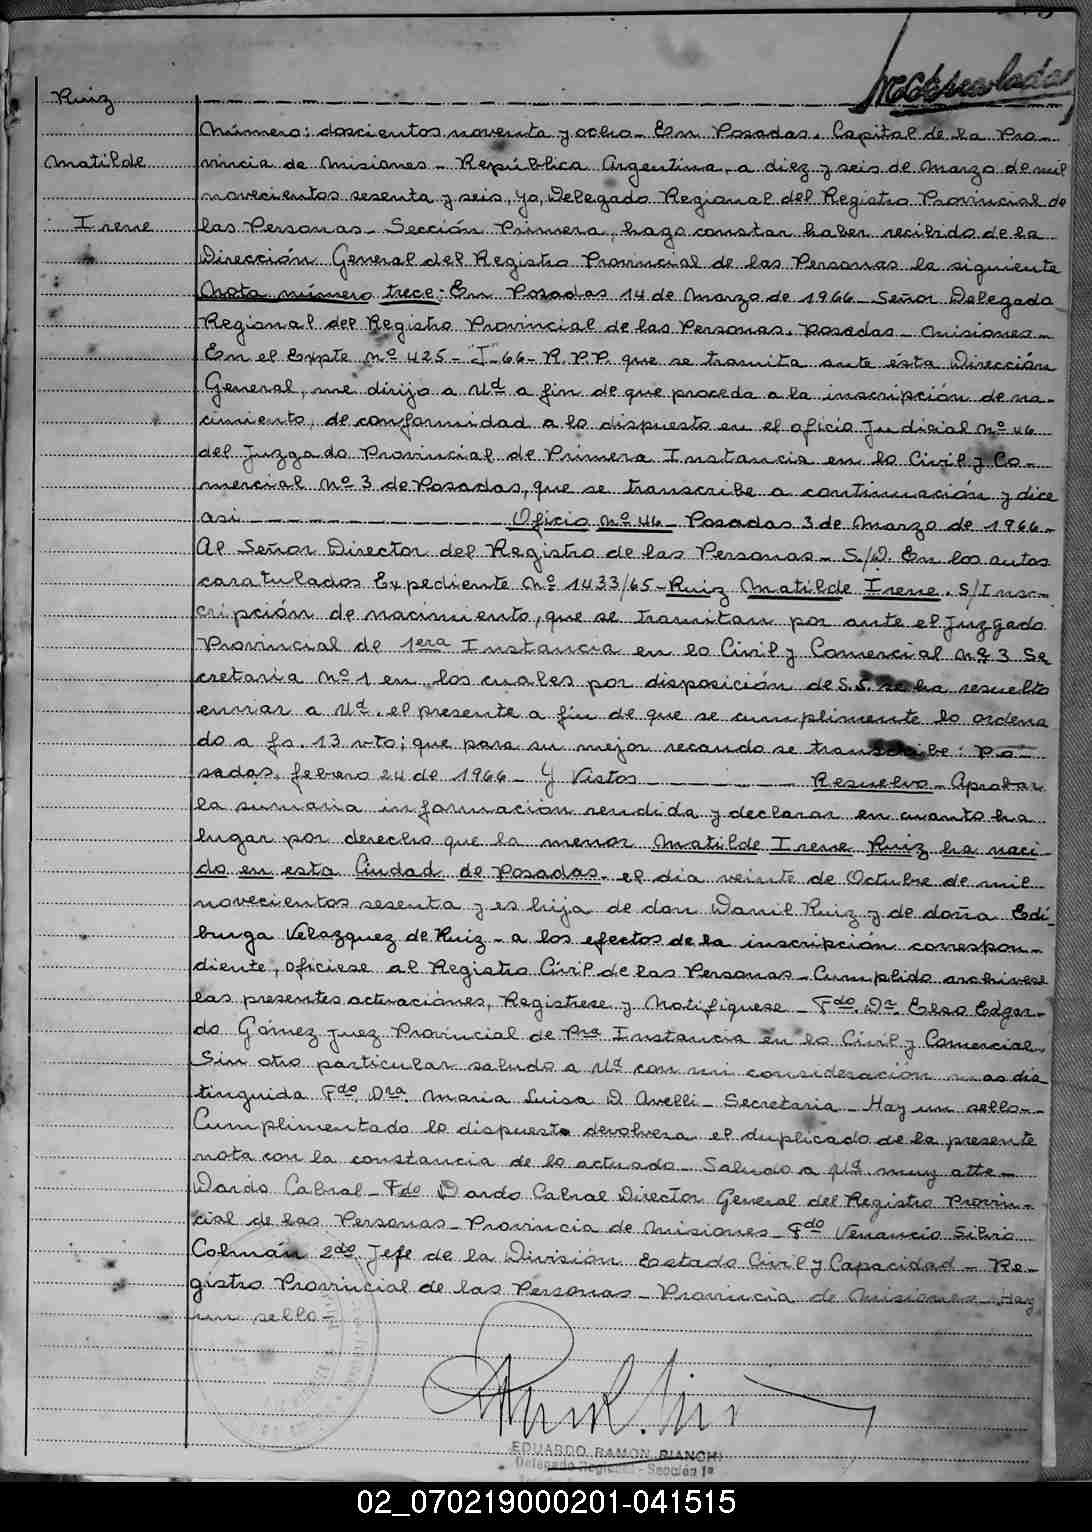 Ruiz
Matilde
Irene
Número: doscientos noventa y ocho - En Posadas, Capital de la Pro-
vincia de Misiones - República Argentina, a diez y seis de Marzo de mil
novecientos sesenta y seis, yo, Delegado Regional del Registro Provincial de
las Personas - Sección Primera, hago constar haber recibido de la
Dirección General del Registro Provincial de las Personas la siguiente
Nota número trece: En Posadas 14 de Marzo de 1966 - Señor Delegado
Regional del Registro Provincial de las Personas, Posadas - Misiones -
En el Expte nº 425 - "J" - 66 - R.P.P. que se tramita ante ésta Dirección
General, me dirijo a Ud a fin de que proceda a la inscripción de na-
cimiento, de conformidad a lo dispuesto en el oficio Judicial Nº 46
del Juzgado Provincial de Primera Instancia en lo Civil y Co-
mercial Nº 3 de Posadas, que se transcribe a continuación y dice
asi - Oficio Nº 46 - Posadas 3 de Marzo de 1966 -
Al Señor Director del Registro de las Personas - S./D. En los autos
caratulados Expediente Nº 1433/65 - Ruiz Matilde Irene. S/Ins-
cripción de nacimiento, que se tramitan por ante el Juzgado
Provincial de 1era Instancia en lo Civil y Comercial nº 3 Se
cretaria Nº 1 en los cuales por disposición de S.S. se ha resuelto
enviar a Ud. el presente a fin de que se cumplimente lo ordena
do a fs. 13 vto; que para su mejor recaudo se transcribe: Po-
sadas, febrero 24 de 1966 - Y Vistos - Resuelvo - Aprobar
la sumaria información rendida y declarar en cuanto ha
lugar por derecho que la menor Matilde Irene Ruiz ha naci-
do en esta Ciudad de Posadas - el día veinte de Octubre de mil
novecientos sesenta y es hija de don Danil Ruiz y de doña Edi
burga Velazquez de Ruiz - a los efectos de la inscripción correspon-
diente, ofíciese al Registro Civil de las Personas - Cumplido archívese
las presentes actuaciónes, Registrese y Notifiquese - Fdo. Dr Elso Edgar-
do Gómez Juez Provincial de Pra Instancia en lo Civil y Comercial.
Sin otro particular saludo a Ud con mi consideración mas dis
tinguida Fdo. Dra. Maria Luisa D. Avelli - Secretaria - Hay un sello -
Cumplimentado lo dispuesto devolvera el duplicado de la presente
nota con la constancia de lo actuado - Saludo a Ud. muy atte -
Dardo Cabral - Fdo Dardo Cabral Director General del Registro Provin-
cial de las Personas - Provincia de Misiones - Fdo Venancio Silvio
Colmán 2do Jefe de la División Estado Civil y Capacidad - Re-
gistro Provincial de las Personas - Provincia de Misiones - Hay
un sello -
EDUARDO RAMON BIANCHI
Delegado Regional - Sección 1ª
02_070219000201-041515